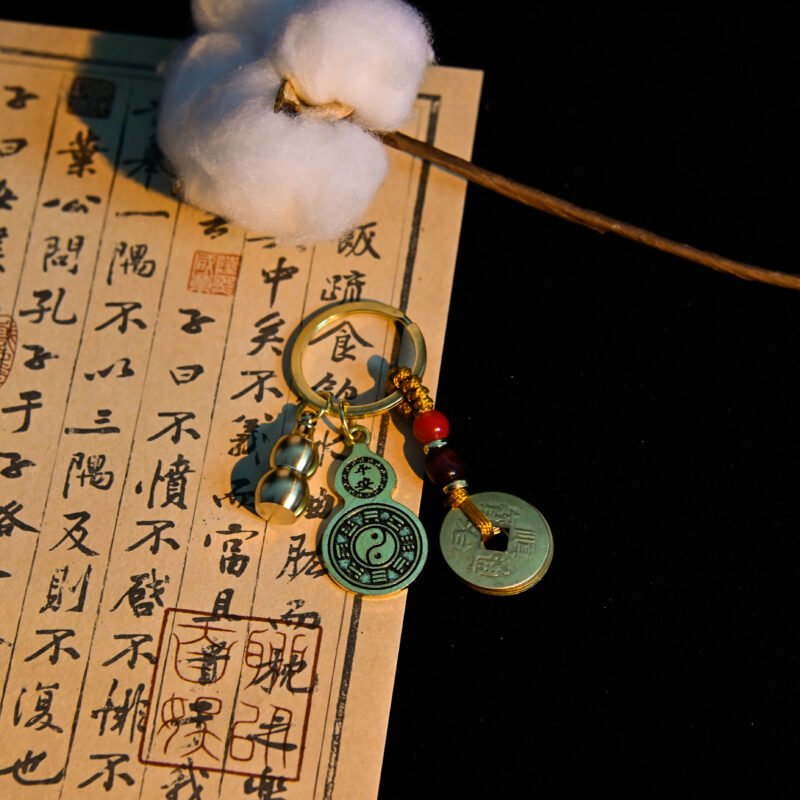 飯疏食飲水曲肱而枕之樂
中矣不義而富且貴於我
子曰不憤不啟不悱不
舉一隅不以三隅反則不復也
葉公問孔子于子路
子曰女奚
平安